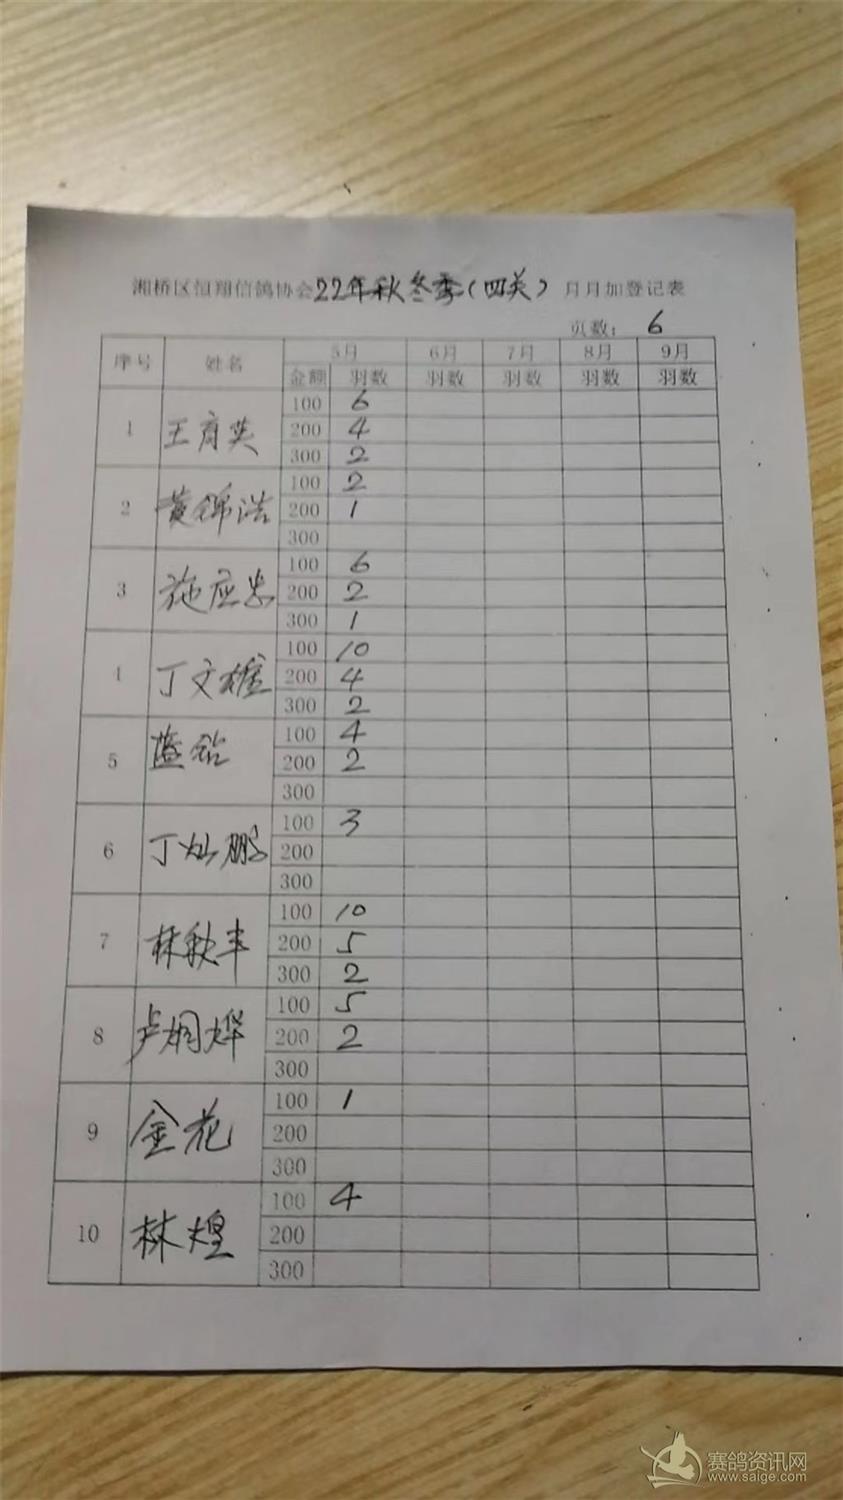 湘桥区恒翔信鸽协会22年秋冬季(四关)月月加登记表
页数: 6
序号 姓名 5月 6月 7月 8月 9月
金额 羽数 羽数 羽数 羽数 羽数
100 6
1 王育英 200 4
300 2
100 2
2 黄锦浩 200 1
300
100 6
3 施应忠 200 2
300 1
100 10
1 丁文雄 200 4
300 2
100 4
5 蓝钻 200 2
300
100 3
6 丁灿鹏 200
300
100 10
7 林秋丰 200 5
300 2
100 5
8 卢炯烨 200 2
300
100 1
9 金花 200
300
100 4
10 林煌 200
300
赛鸽资讯网
www.saige.com